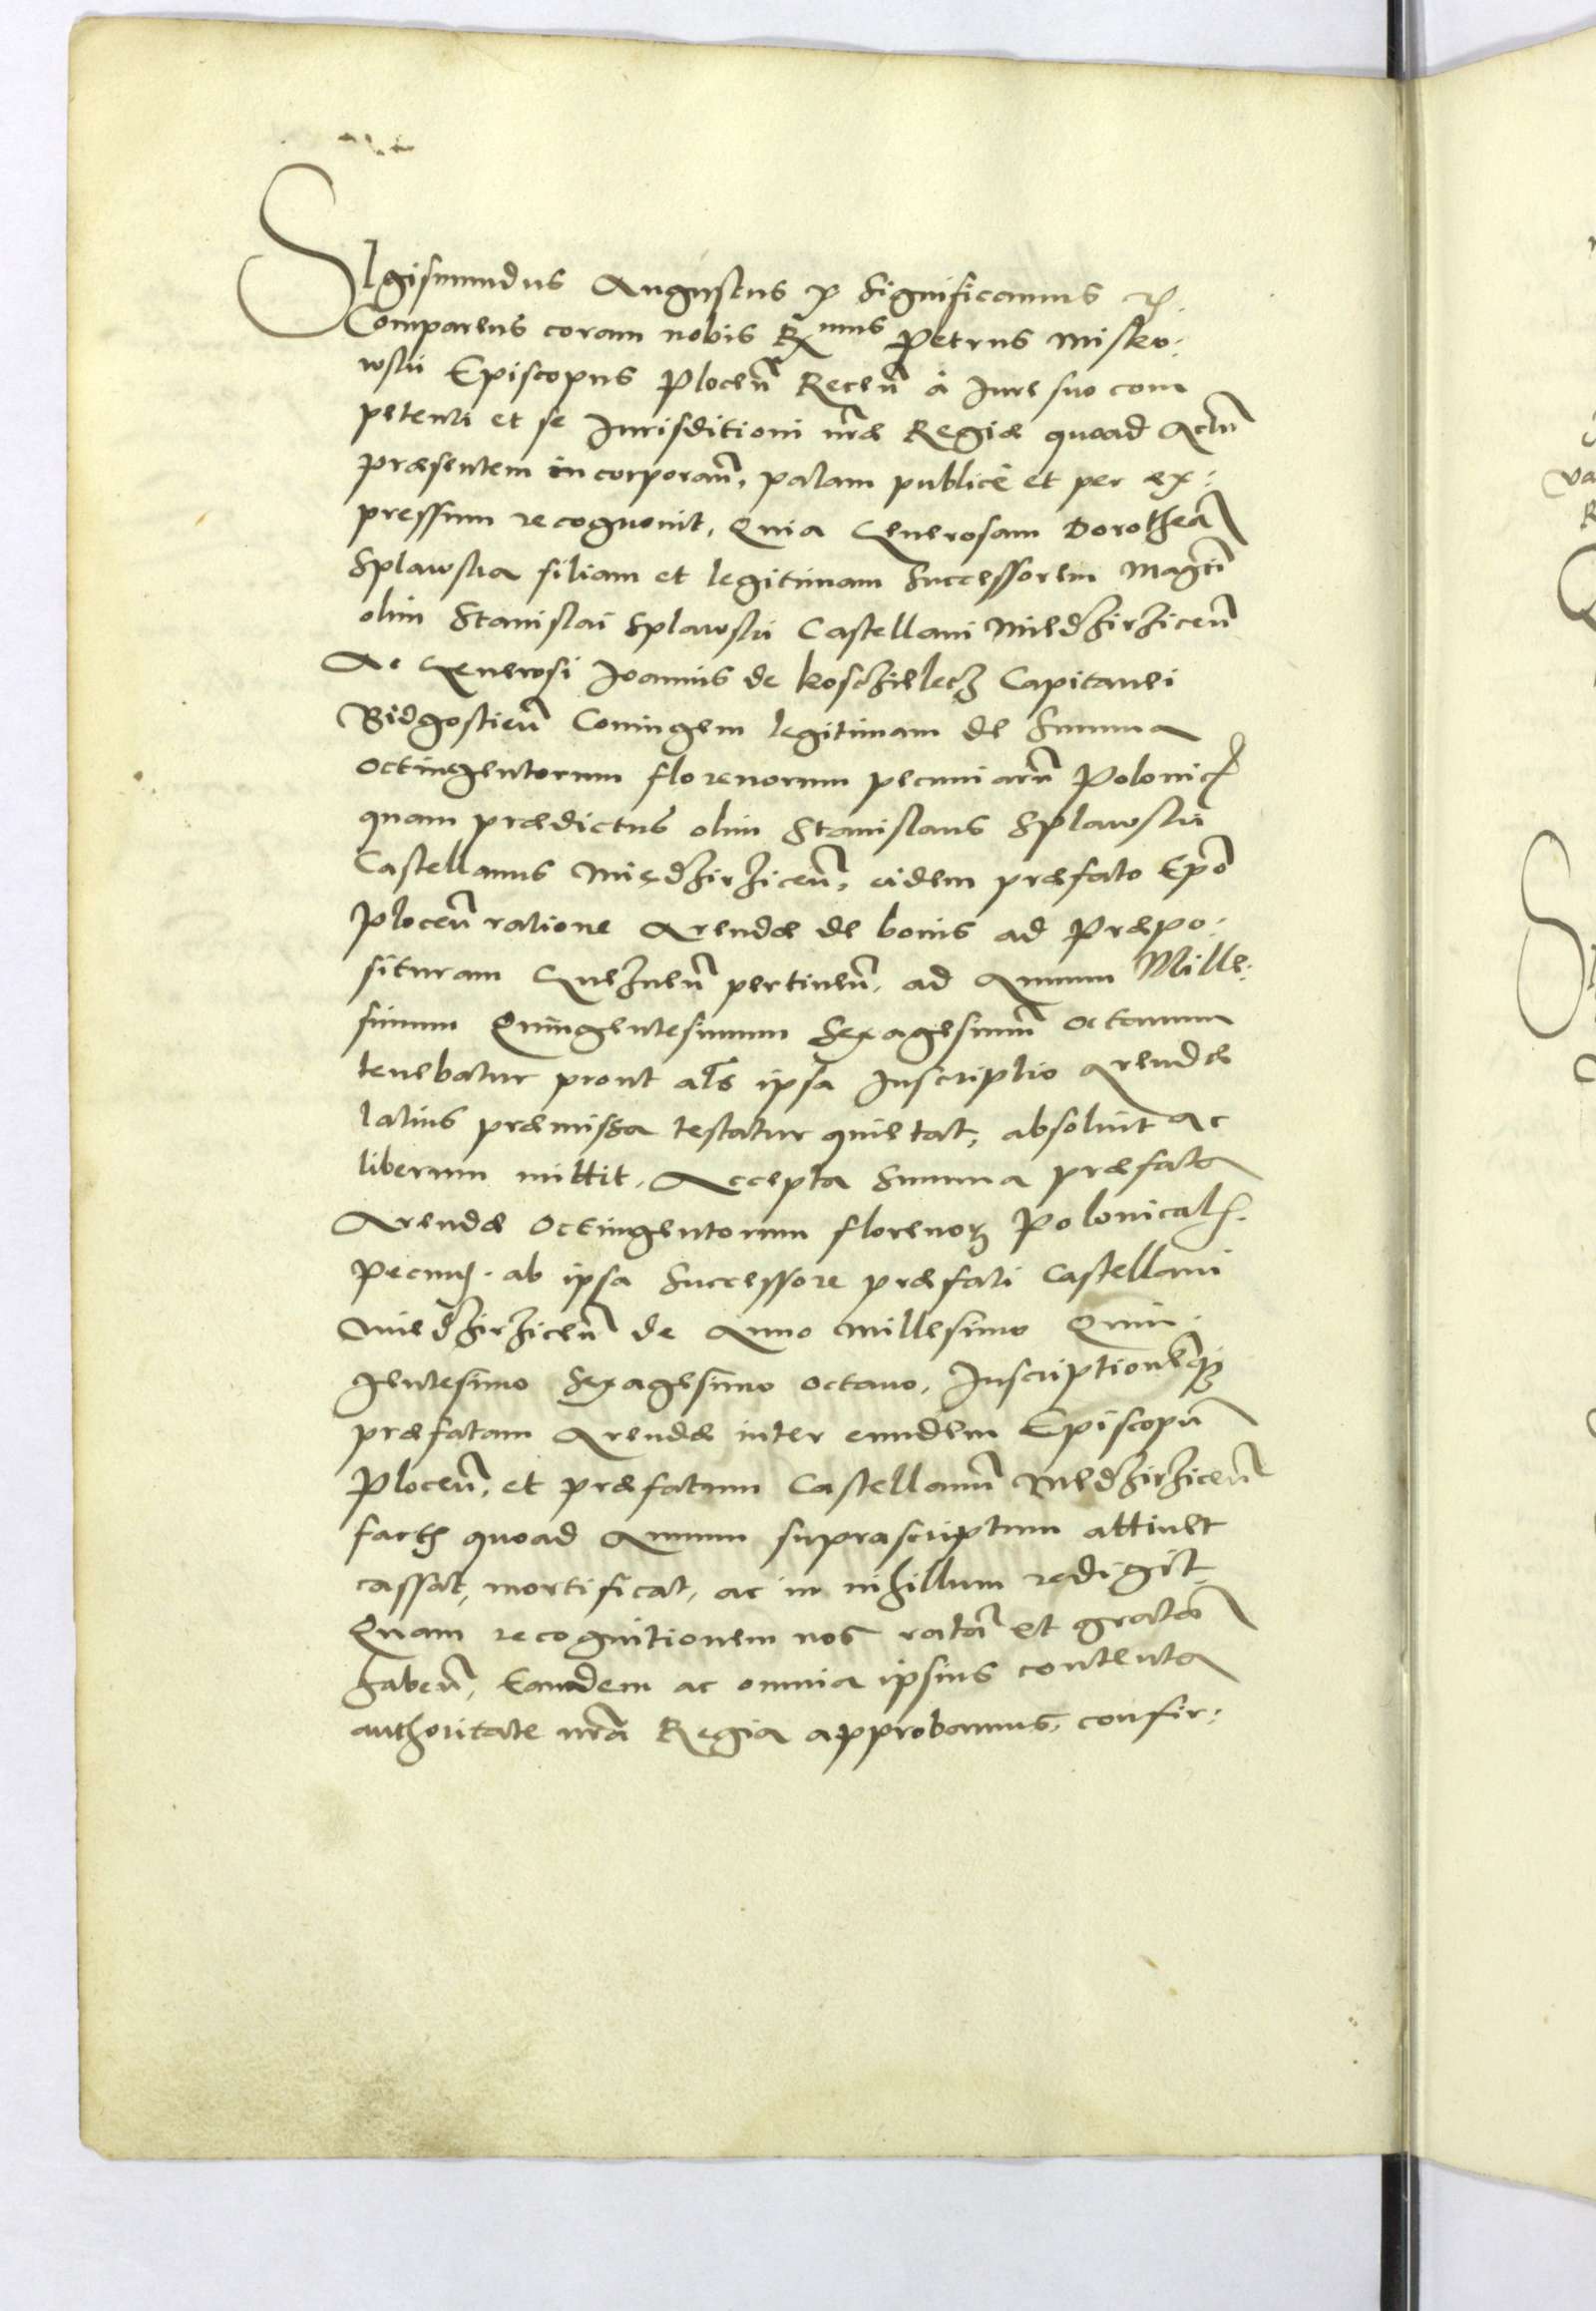 SIgismundus Augustus etc Significamus etc.
Comparens coram nobis Rmus Petrus Misko:
wskii Episcopus Ploceñ Receñ à Jure suo com
petenti et se Jurisditioni nræ Regiæ quoad Actũ
præsentem incorporañ, palam publicè et per ex:
pressum recognovit, Quia Generosam Dorotheã
Splawska filiam et legitimam Successorem Magci
olim Stanislai Splawskii Castellani Miedzirziceñ
Ac Generosi Joannis de Kosczielecz Capitanei
Bidgosticeñ Coniugem legitimam de Summa
octingentorum florenorum pecuniarũ Polonic
quam prædictus olim Stanislaus Splawskii
Castellanus Miedzirziceñ, eidem præfato Epõ
Ploceñ ratione Arendæ de bonis ad Præpo:
situram Gneznen̄ pertineñ, ad Annum Mille:
simum Quingentesimum Sexagesimũ octavum
tenebatur prout als ipsa Inscriptio Arendæ
latius præmissa testatur quietat, absoluit Ac
liberum mittit, Accepta Summa præfata
Arendæ Octingentorum florenorz Polonical.
Pecunÿ. ab ipsa Successore præfati Castellani
Miedzirziceñ de Anno Millesimo Quin:
gentesimo Sexagesimo octavo, Inscriptionemqz
præfatam Arendæ inter eundem Episcopũ
Ploceñ, et præfatum Castellanũ Medzirziceñ
factȝ quoad Annum suprascriptum attinet
cassat, mortificat, ac in nihillum redigit
Quam recognitionem nos ratã et gratã
habeñ, Eamdem ac omnia ipsius contenta
authoritate nrã Regia approbamus, confir: